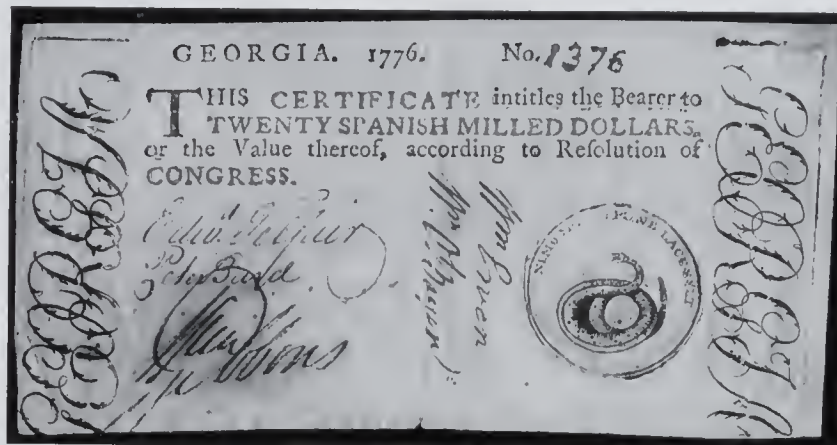 GEORGIA. 1776. No. 1376
THIS CERTIFICATE intitles the Bearer to
TWENTY SPANISH MILLED DOLLARS,
or the Value thereof, according to Resolution of
CONGRESS.
Edwd. Telfair
John Baird
Wm Ewen
NEMO ME IMPUNE LACESSET
GEORGIA